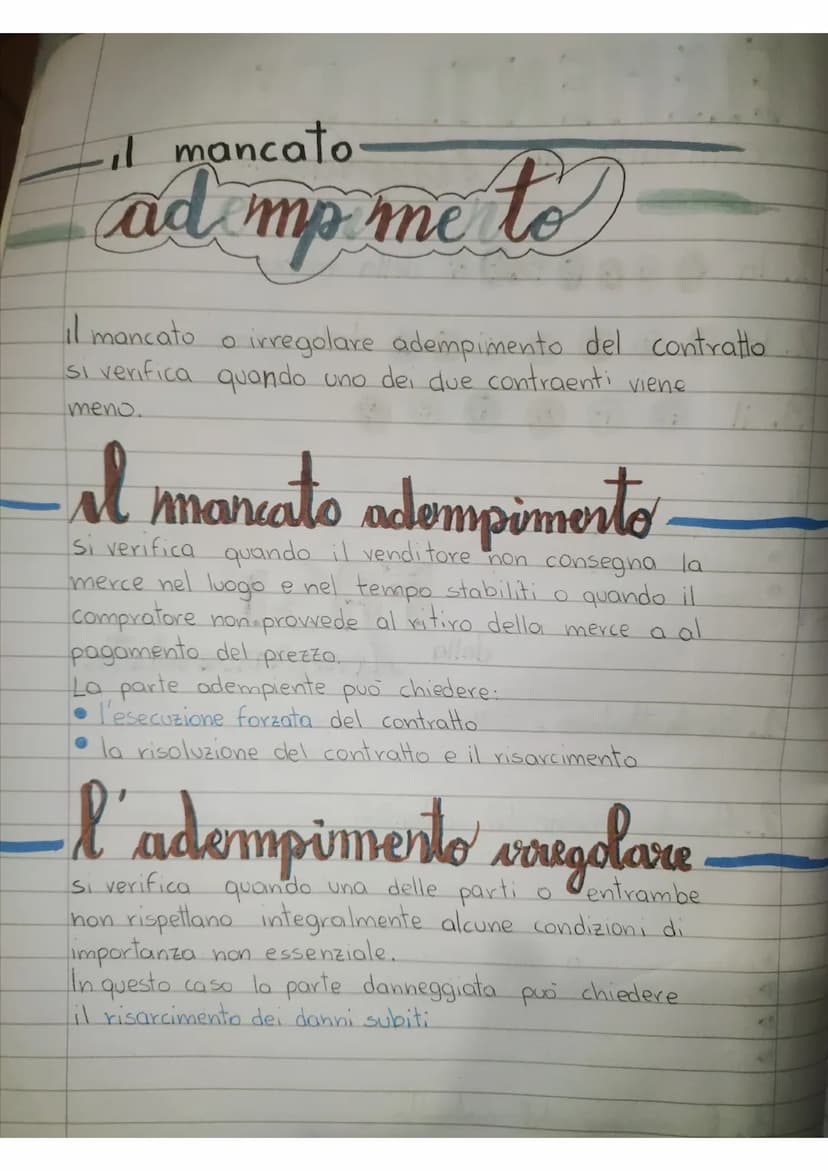 il mancato
adempimento
il mancato o irregolare adempimento del contratto
si verifica quando uno dei due contraenti viene
meno.
Il mancato adempimento
si verifica quando il venditore non consegna la
merce nel luogo e nel tempo stabiliti o quando il
compratore non provvede al ritiro della merce a al
pagamento del prezzo.
La parte adempiente può chiedere:
• l'esecuzione forzata del contratto
• la risoluzione del contratto e il risarcimento
l'adempimento irregolare
si verifica quando una delle parti o entrambe
non rispettano integralmente alcune condizioni di
importanza non essenziale.
In questo caso la parte danneggiata può chiedere
il risarcimento dei danni subiti